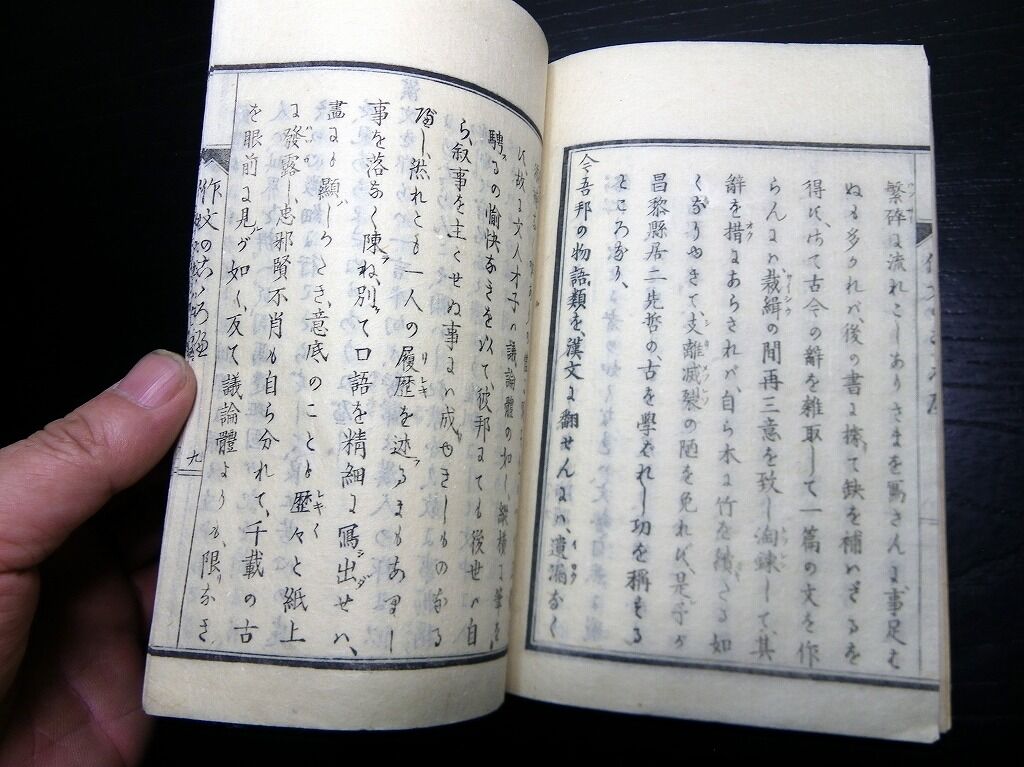 繁碎に流れこ、ありさまを寫さんに事足
ぬも多かれバ、後の書に據て缺を補ハざるを
得ず、けて古今の辭を雜取して一篇の文を作
らんにハ裁緝の間再三意を致し淘錬して、其
辭を措にあらされバ、自ら木に竹を續ぎたる如
くなりゆきて、支離滅裂の陋を免れず、是予が
昌黎縣居二先哲の、古を學バれし功を稱する
ところなり、
今吾邦の物語類を、漢文に翻せんにハ、遺漏なく
ず、故に文人才子ハ議論體の如し、縱横に筆を
騁るの愉快なきを以て、彼邦にても後世ハ自
ら、敘事を主とせぬ事にハ成ゆきしものなる
然れとも一人の履歴を述るにもあ
事を落なく陳ね、別て口語を精細に寫出せハ、
盡に顯しかたき、意底のことも歴々と紙上
に發露し、忠邪賢不肖も自ら分れて、千載の古
を眼前に見が如く、反て議論體よりも、限なき
作文の
九